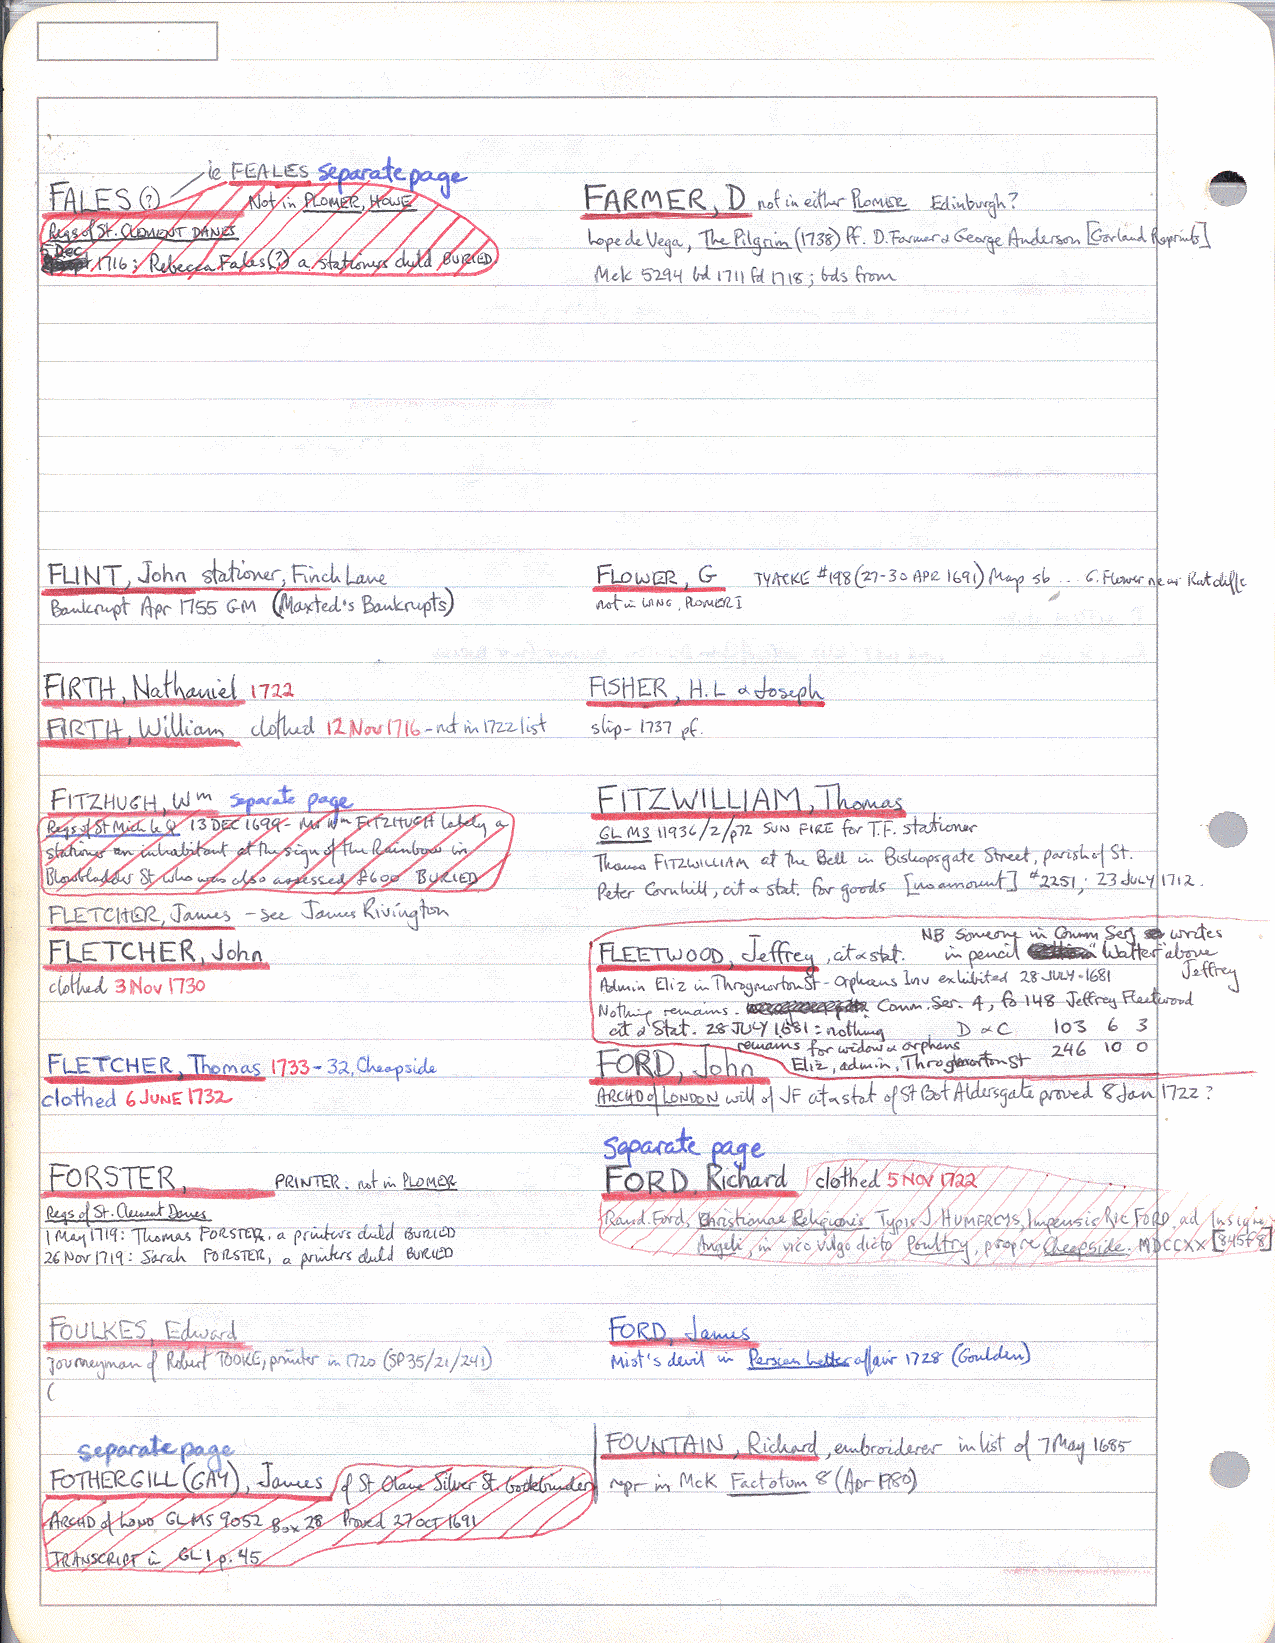 ie FEALES separate page
FALES (?) Not in PLOMER, HOWE
Regs of St. CLEMENT DANES
5 Dec
1716: Rebecca Fales(?) a stationers child BURIED
FARMER, D not in either PLOMER Edinburgh?
Lope de Vega, The Pilgrim (1738) Pf. D. Farmer & George Anderson [Garland Reprints]
McK 5294 bd 1711 fd 1718; bds from
FLINT, John stationer, Finch Lane
Bankrupt Apr 1755 GM (Maxted's Bankrupts)
FLOWER, G TYACKE #198 (27-30 APR 1691) Map sb ... G. Flower near Ratcliffe
not in WING, PLOMER I
FIRTH, Nathaniel 1722
FIRTH, William clothed 12 Nov 1716 - not in 1722 list
FISHER, H.L & Joseph
slip- 1737 pf.
FITZHUGH, Wm separate page
Regs of St Mich le Q 13 DEC 1699 - Mr Wm FITZHUGH lately a
stationer an inhabitant at the sign of the Rainbow in
Blowbladder St who was also assessed £600 BURIED
FITZWILLIAM, Thomas
GL MS 11936/2/p72 SUN FIRE for T.F. stationer
Thomas FITZWILLIAM at the Bell in Bishopsgate Street, parish of St.
Peter Cornhill, cit & stat. for goods [no amount] #2251, 23 JULY 1712.
FLETCHER, James - see James Rivington
FLETCHER, John
clothed 3 Nov 1730
NB Someone in Comm Serj writes
FLEETWOOD, Jeffrey, cit & stat. in pencil "Walter" above
Jeffrey
Admin Eliz in Throgmorton St - Orphans Inv exhibited 28 JULY 1681
Nothing remains. Comm. Ser. 4, fo 148 Jeffrey Fleetwood
cit & Stat. 28 JULY 1681: nothing D & C 103 6 3
remains for widow & orphans 246 10 0
Eliz, admin, Throgmorton St
FLETCHER, Thomas 1733 - 32, Cheapside
clothed 6 JUNE 1732
FORD, John
ARCHD of LONDON will of JF cit & stat of St Bot Aldersgate proved 8 Jan 1722?
FORSTER, PRINTER. not in PLOMER
Regs of St. Clement Danes
1 May 1719: Thomas FORSTER, a printers child BURIED
26 Nov 1719: Sarah FORSTER, a printers child BURIED
separate page
FORD, Richard clothed 5 NOV 1722
Rand. Ford, Christianae Religionis Typis J. HUMFREYS, Impensis Ric FORD, ad Insigne
Angeli, in vico vulgo dicto Poultry, prope Cheapside. MDCCXX [845f8]
FOULKES, Edward
Journeyman of Robert TOOKE, printer in 1720 (SP35/21/241)
(
FORD, James
Mist's devil in Persian Letter affair 1728 (Goulden)
separate page
FOTHERGILL (GAY), James of St Olave Silver St. bookbinder
ARCHD of LOND GL MS 9052 Box 28 Proved 27 OCT 1691
TRANSCRIPT in GL 1 p. 45
FOUNTAIN, Richard, embroiderer in list of 7 May 1685
repr in McK Factotum 8 (Apr 1980)